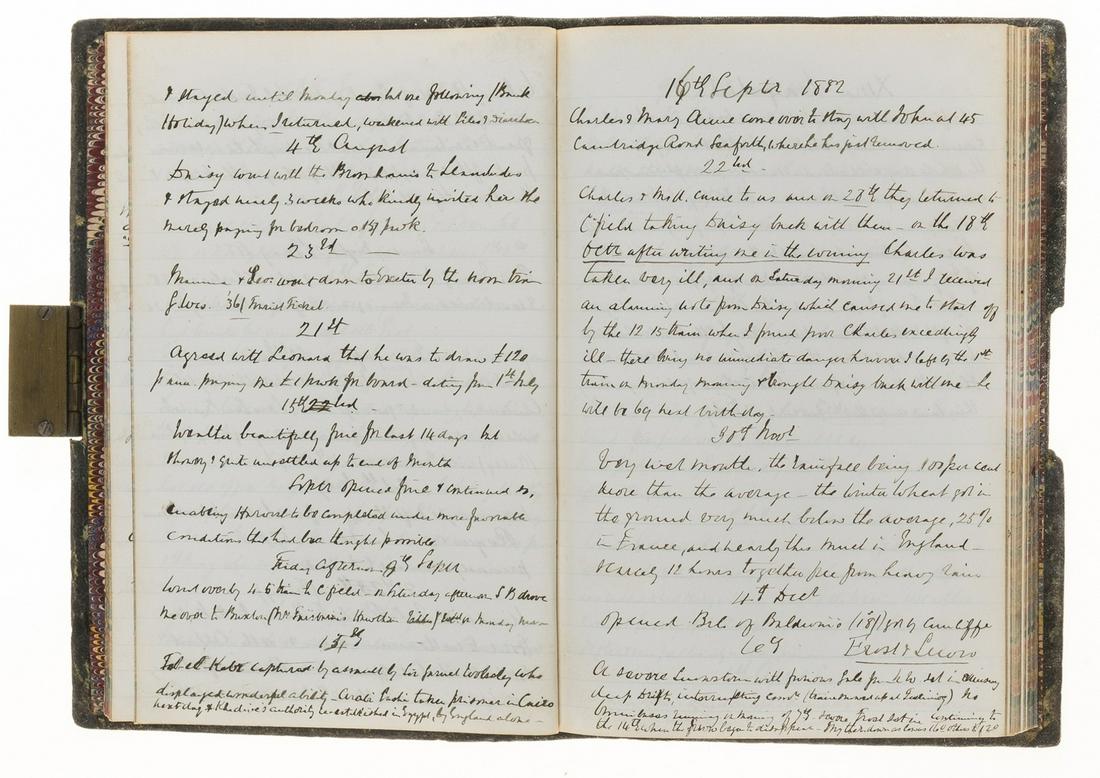 & stayed until Monday but one following (Bank
Holiday) when I returned, weakened with Piles & Diarrhoea
4th August
Daisy went with the to Llandudno
& stayed nearly 3 weeks who kindly invited her she
merely paying for bedroom 0 15/ p wk.
23rd
Mamma & Leo: went down to Exeter by the noon train
& Ives. 36/ Tourist Ticket
21st
Agreed with Leonard that he was to draw £120
p ann. paying me £1 p wk for board - dating from 1st July
15th 22nd
Weather beautifully fine for last 14 days but
showery & quite unsettled up to end of Month
Septr opened fine & continued so,
enabling Harvest to be completed under more favorable
conditions than had been thought possible
Friday afternoon 9th Septr
went over by 4.5 train to C'field - on Saturday afternoon S B drove
me over to Buxton (Mr on Monday
13th
Tel el Kebir captured by assault by Sir Garnet Wolseley who
displayed wonderful ability Arabi Pasha taken prisoner in Cairo
next day & Khedive's authority re-established in Egypt, by England alone -
16th Septr 1882
Charles & Mary Anne come over to stay with John at 45
Cambridge Road Seaforth, where he has just removed.
22nd.
Charles & came to us and on 28th they returned to
C'field taking Daisy back with them - on the 18th
Octr after writing me in the evening Charles was
taken very ill, and on Saturday morning 21st I received
an alarming note from Daisy which caused me to start off
by the 12 15 train when I found poor Charles exceedingly
ill - there being no immediate danger however I left by the 1st
train on Monday morning & brought Daisy back with me - he
will be 69 next birth-day
30th Novr
Very wet month, the rainfall being 100 per cent
more than the average - the winter wheat got in
the ground very much below the average, 25%
in France, and nearly this much in England -
scarcely 12 hours together free from heavy rain
4th Decr
opened Brl. of Baldwin's (18/) gr by Cunliffe
6th Frost & Snow
A severe Snowstorm with furious gale set in causing
deep Drifts, interrupting (Tram & Railway) No
Omnibuses running on morning of 7th severe Frost set in continuing to
the 14th when the snow began to disappear -